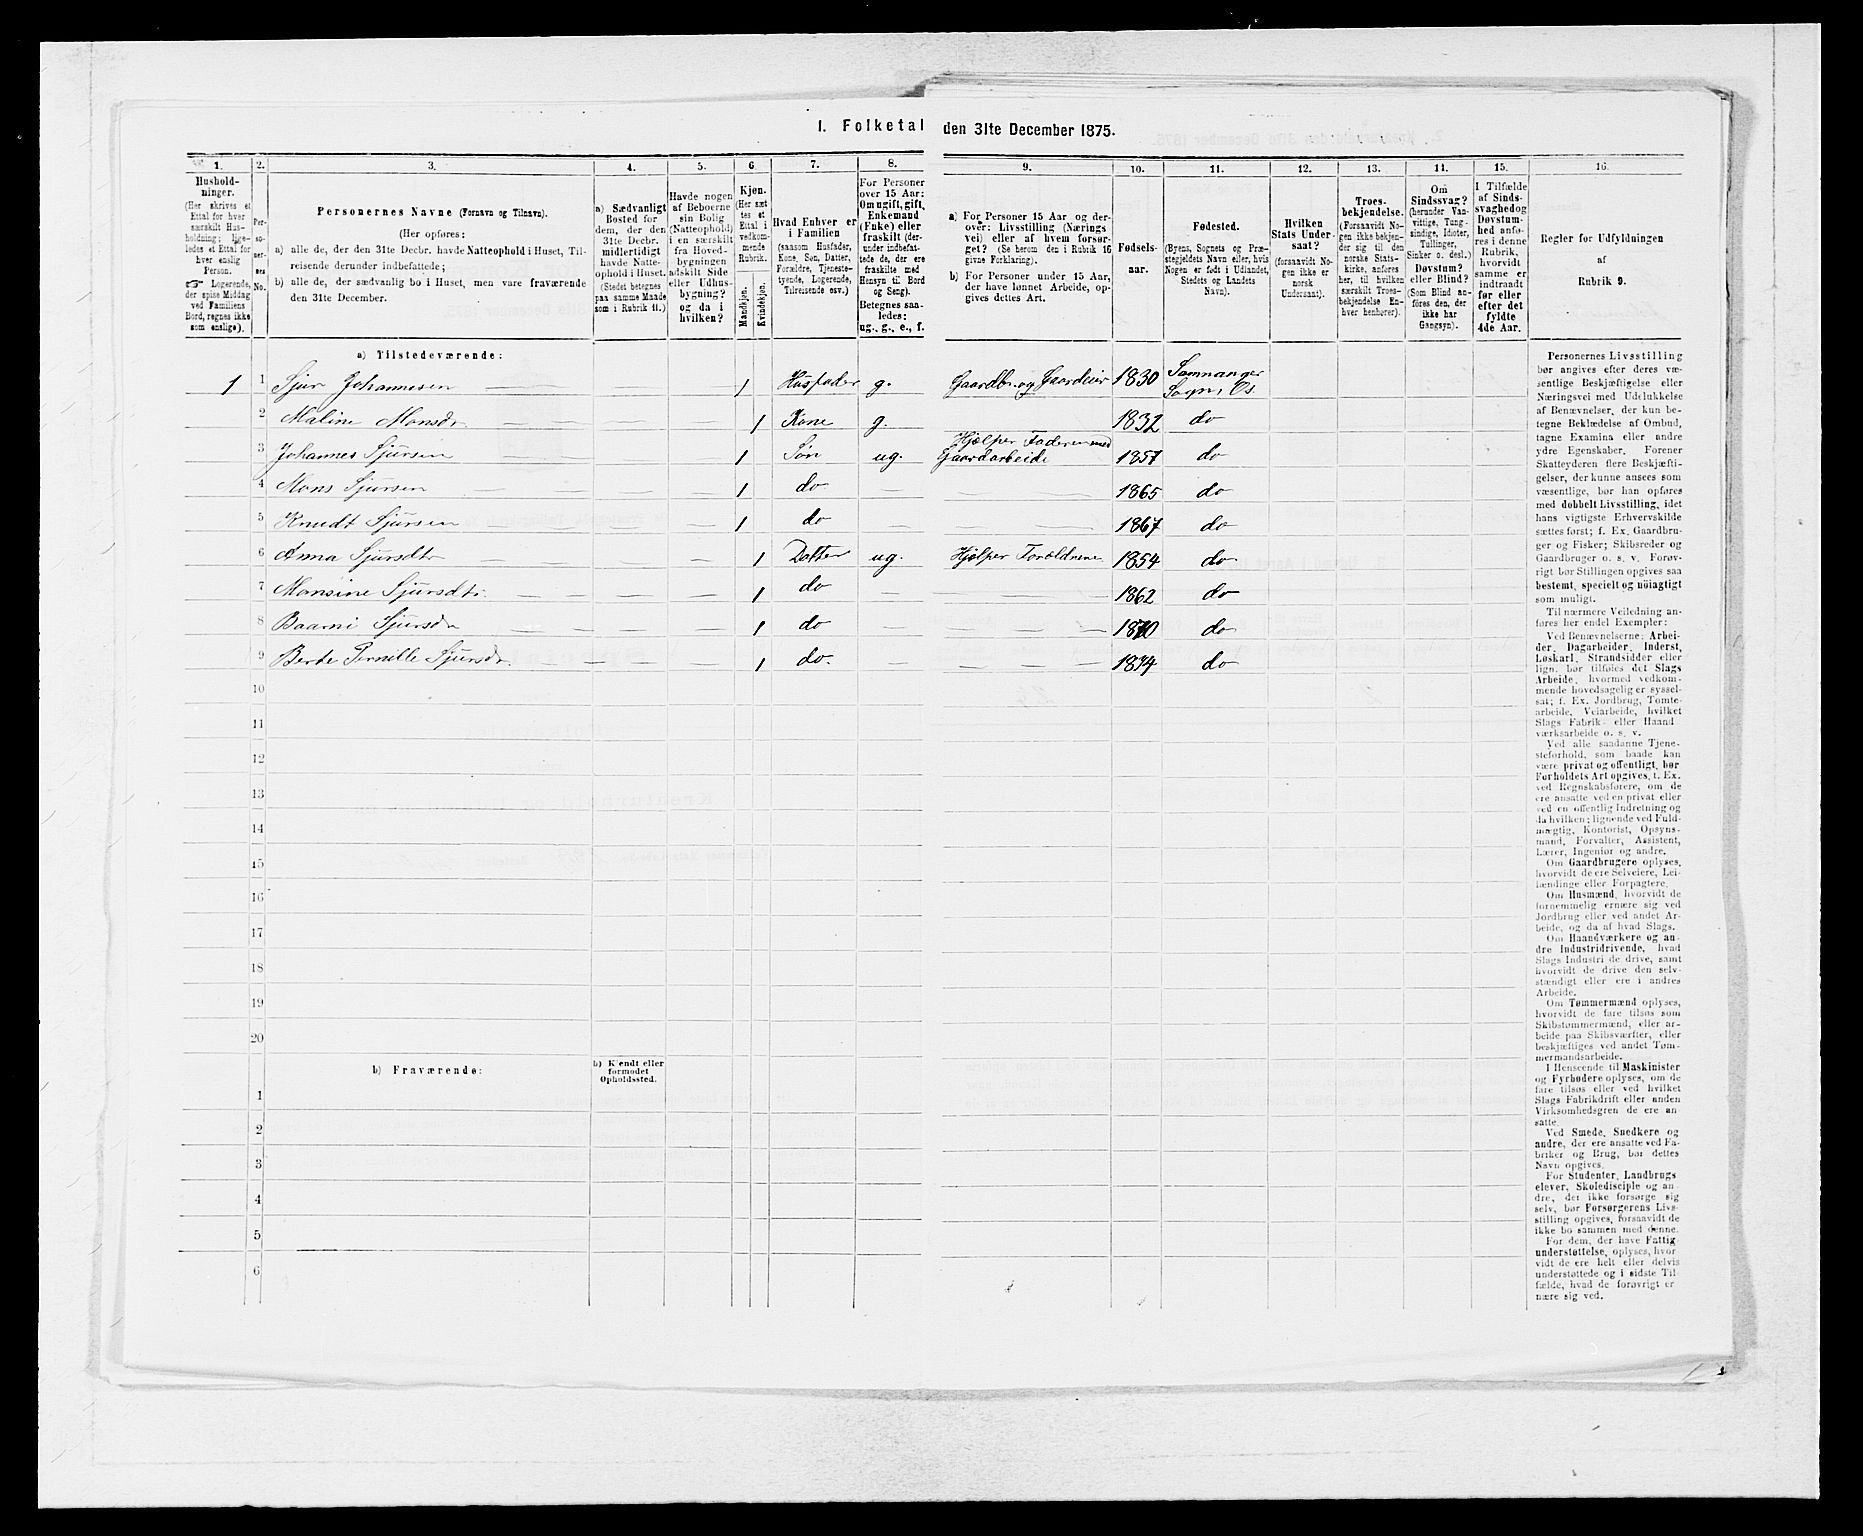 I. Folketal den 31te December 1875.
1. 2. 3. 4. 5. 6 7. 8. 9. 10. 11. 12. 13. 11. 15. 16.
Hushold-
ninger.
(Her skrives et
Ettal for hver
særskilt Hus-
holdning; lige-
ledes et Ettal for
hver enslig
Person.
☞ Logerende,
der spise Middag
ved Familiens
Bord, regnes ikke
som enslige).
Per-
so-
ner-
nes
No.
Personernes Navne (Fornavn og Tilnavn).
(Her opføres:
a) alle de, der den 31te Decbr. havde Natteophold i Huset, Til-
reisende derunder indbefattede;
b) alle de, der sædvanlig bo i Huset, men vare fraværende
den 31te December.
a) Sædvanligt
Bosted for
dem, der den
31te Decbr.
midlertidigt
havde Natte-
ophold i Huset.
(Stedet betegnes
paa samme Maade
som i Rubrik 11.)
Havde nogen
af Beboerne
sin Bolig
(Natteophold)
i en særskilt
fra Hoved-
bygningen
adskilt Side
eller Udhus-
bygning?
og da i
hvilken?
Kjøn.
(Her sæt
tes et
Ettal i
vedkom-
mende
Rubrik.
Mandkjøn.
Kvindekjøn.
Hvad Enhver er
i Familien
(saasom Husfader,
Kone, Søn, Datter,
Forældre, Tjeneste-
tyende, Logerende,
Tilreisende osv.)
For Personer
over 15 Aar:
Om ugift, gift,
Enkemand
(Enke) eller
fraskilt (der-
under indbefat-
tede de, der ere
fraskilte med
Hensyn til Bord
og Seng).
Betegnes saa-
ledes:
ug., g., e., f.
a) For Personer 15 Aar og der-
over: Livsstilling (Nærings
vei) eller af hvem forsør-
get? (Se herom den i Rubrik 16
givne Forklaring).
b) For Personer under 15 Aar,
der have lønnet Arbeide, op-
gives dettes Art.
Fødsels-
aar.
Fødested.
(Byens, Sognets og Præ-
stegjeldets Navn eller, hvis
Nogen er født i Udlandet,
Stedets og Landets
Navn).
Hvilken
Stats Under-
saat?
(forsaavidt No-
gen ikke er
norsk
Undersaat).
Troes-
bekjendelse.
(Forsaavidt No-
gen ikke bekjen-
der sig til den
norske Stats-
kirke, anføres
her, til hvilken
særskilt Troes-
bekjendelse En-
hver henhører).
Om
Sindssvag?
(herunder Van-
vittige, Tung-
sindige, Idioter,
Tullinger,
Sinker o. desl.)
Døvstum?
eller Blind?
(Som Blind an-
føres den, der
ikke har
Gangsyn).
I Tilfælde
af Sinds-
svaghed og
Døvstum-
hed anfø-
res i denne
Rubrik,
hvorvidt
samme er
indtraadt
før eller
efter det
fyldte
4de Aar.
Regler for Udfyldningen
af
Rubrik 9.
a) Tilstedeværende:
1 1 Sjur Johannesen — — 1 Husfader g. Gaardbr. og Gaardeier 1830 Samnanger
Sogn, Os.
2 Maline Monsdr — — — 1 Kone g. 1832 do
3 Johannes Sjursen — — — 1 Søn ug. Hjælper Faderen med
Gaardarbeide 1857 do
4 Mons Sjursen — — — 1 do — — 1865 do
5 Knudt Sjursen — — — 1 do — — 1867 do
6 Anna Sjursdtr — — — 1 Datter ug. Hjælper Forældrene 1854 do
7 Monsine Sjursdtr — — — 1 do — — 1862 do
8 Baarni Sjursdr — — — 1 do — — 1870 do
9 Berte Pernille Sjursdr. — — — 1 do. — — 1874 do
10
11
12
13
14
15
16
17
18
19
20
b) Fraværende:
b) Kjendt eller
formodet
Opholdssted.
1
2
3
4
5
6
Personernes Livsstilling
bør angives efter deres væ-
sentlige Beskjæftigelse eller
Næringsvei med Udelukkelse
af Benævnelser, der kun be-
tegne Beklædelse af Ombud,
tagne Examina eller andre
ydre Egenskaber. Forener
Skatteyderen flere Beskjæfti-
gelser, der kunne ansees som
væsentlige, bør han opføres
med dobbelt Livsstilling, idet
hans vigtigste Erhvervskilde
sættes først; f. Ex. Gaardbru-
ger og Fisker; Skibsreder og
Gaardbruger o. s. v. Forøv-
rigt bør Stillingen opgives saa
bestemt, specielt og nøiagtigt
som muligt.
Til nærmere Veiledning an-
føres her endel Exempler:
Ved Benævnelserne: Arbei-
der, Dagarbeider, Inderst,
Løskarl, Strandsidder eller
lign. bør tilføies det Slags
Arbeide, hvormed vedkom-
mende hovedsagelig er syssel-
sat; f. Ex. Jordbrug, Tomte-
arbeide, Veiarbeide, hvilket
Slags Fabrik- eller Haand
værksarbeide o. s. v.
Ved alle saadanne Tjene-
steforhold, som baade kan
være privat og offentligt, bør
Forholdets Art opgives, t. Ex.
ved Regnskabsførere, om de
ere ansatte ved en privat eller
ved en offentlig Indretning og
da hvilken; lignende ved Fuld-
mægtig, Kontorist, Opsyns-
mand, Forvalter, Assistent,
Lærer, Ingeniør og andre.
Om Gaardbrugere oplyses,
hvorvidt de ere Selveiere, Lei-
lændinge eller Forpagtere.
Om Husmænd, hvorvidt de
fornemmelig ernære sig ved
Jordbrug eller ved andet Ar-
beide, og da af hvad Slags.
Om Haandværkere og an-
dre Industridrivende, hvad
Slags Industri de drive, samt
hvorvidt de drive den selv-
stændigt eller ere i andres
Arbeide.
Om Tømmermænd oplyses,
hvorvidt de fare tilsøs som
Skibstømmermænd, eller ar-
beide paa Skibsværfter, eller
beskjæftiges ved andet Tøm-
mermandsarbeide.
I Henseende til Maskinister
og Fyrbødere oplyses, om de
fare tilsøs eller ved hvilket
Slags Fabrikdrift eller anden
Virksomhedsgren de ere an-
satte.
Ved Smede, Snedkere og
andre, der ere ansatte ved Fa-
briker og Brug, bør dettes
Navn opgives.
For Studenter, Landbrugs
elever, Skoledisciple og an-
dre, der ikke forsørge sig
selv, bør Forsørgerens Livs-
stilling opgives, forsaavidt de
ikke bo sammen med denne.
For dem, der have Fattig
understøttelse, oplyses, hvor
vidt de ere helt eller delvis
understøttede og i sidste Til-
fælde, hvad de forøvrigt er
nære sig ved.